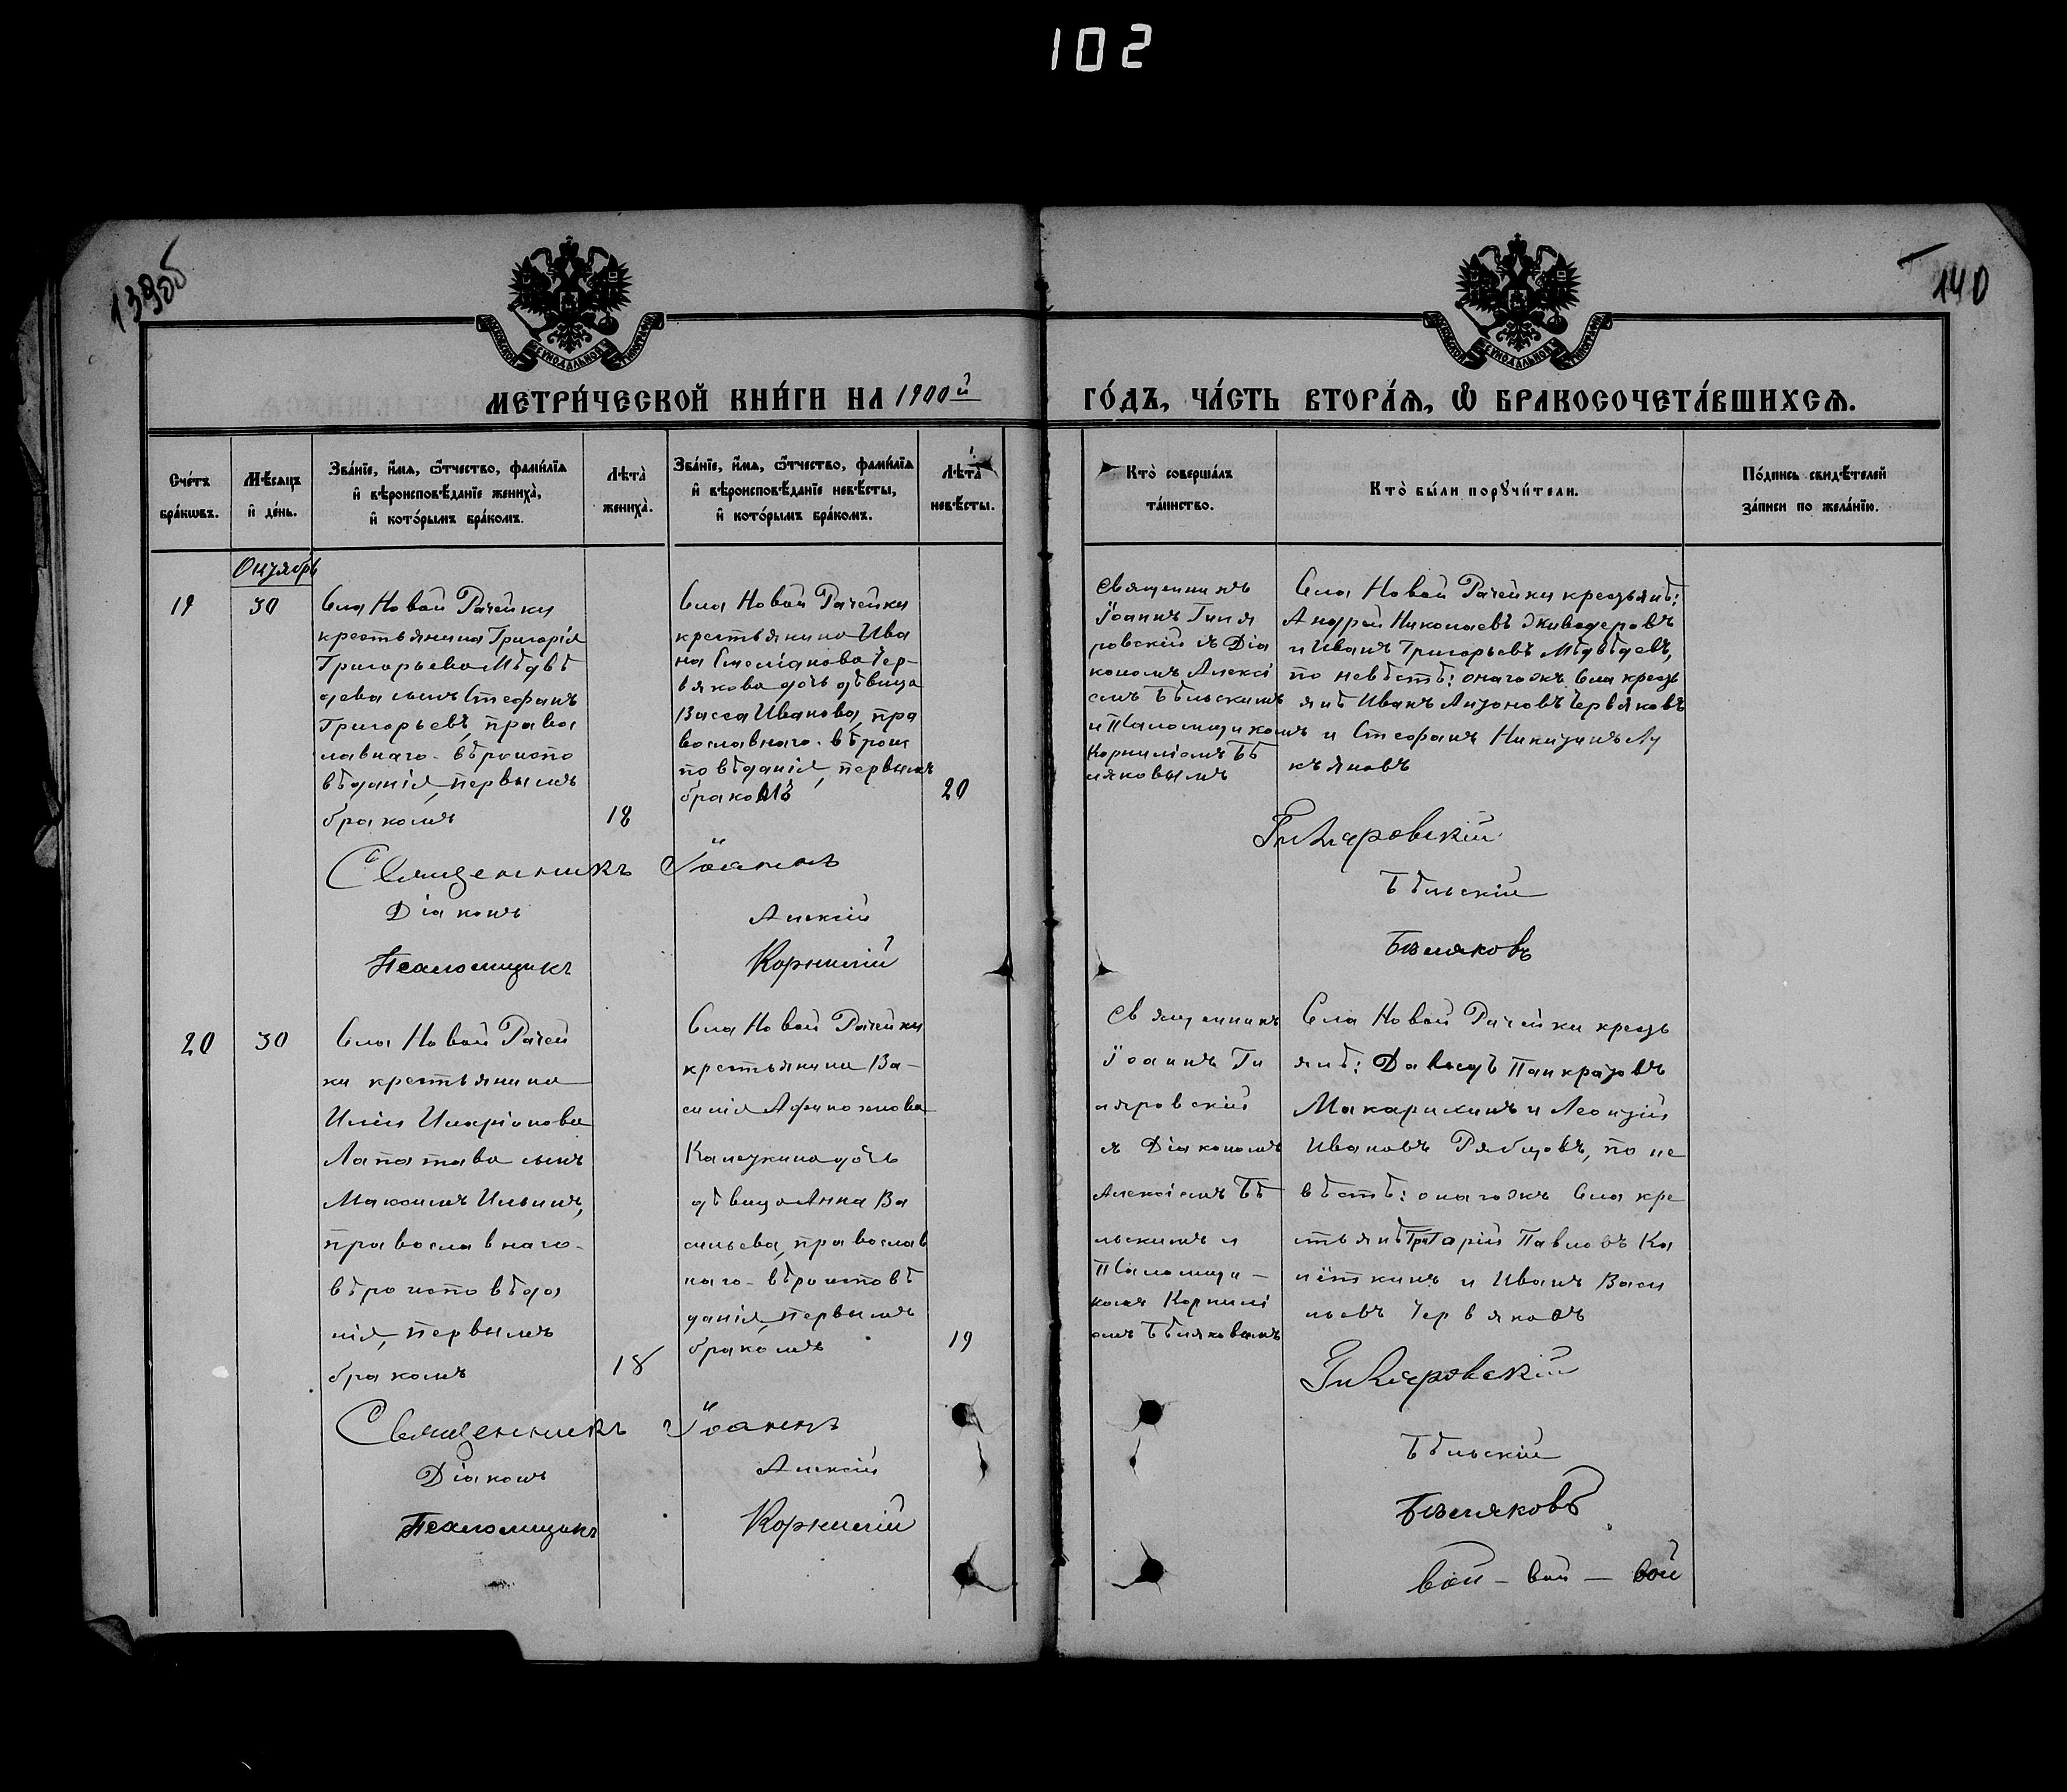 102
139об
140
МЕТРИ́ЧЕСКОЙ КНИ́ГИ НА 1900й
ГО́ДЪ, ЧА́СТЬ ВТОРА́Ѧ, Ѡ҆ БРАКОСОЧЕТА́ВШИХСѦ.
Сче́тъ
бра́кѡвъ.
Мѣ́сяцъ
и҆ де́нь.
Зва́нїе, и҆́мѧ, ѻ҆́тчество, фами́лїѧ
и҆ вѣроисповѣ́данїе жениха̀,
и҆ кото́рымъ бра́комъ.
Лѣта̀
жениха̀.
Зва́нїе, и҆́мѧ, ѻ҆́тчество, фами́лїѧ
и҆ вѣроисповѣ́данїе невѣ́сты,
и҆ кото́рымъ бра́комъ.
Лѣта̀
невѣ́сты.
Кто̀ соверша́лъ
та́инство.
Кто̀ бы́ли порꙋчи́тели.
По́дпись свидѣ́телей
за́писи по жела́нїю.
Октябрь
19
30
Села Новой Рачейки
крестьянина Григорія
Григорьева Мѣдвѣ
дева сынъ Стефанъ
Григорьевъ, правос
лавнаго вѣроиспо
вѣданія, первымъ
бракомъ
18
Села Новой Рачейки
крестьянина Ива
на Емеліанова Чер-
вякова дочь дѣвица
Васса Иванова, пра
вославнаго вѣроис
повѣданія, первымъ
бракомъ
20
Священникъ
Іоаннъ Гиля
ровскій съ Діа
кономъ Алексі
емъ Бѣльскимъ
и Псаломщикомъ
Корниліемъ Бѣ
ляковымъ
Села Новой Рачейки крестьянѣ:
Андрей Николаевъ Живодеровъ
и Иванъ Григорьевъ Мѣдвѣдевъ,
по невѣстѣ: онагожъ села кресть
янѣ Иванъ Антоновъ Червяковъ
и Стефанъ Никитинъ Лу
къяновъ
Священникъ Іоаннъ Гиляровскій
Діаконъ Алексій Бѣльскій
Псаломщикъ Корнилій Бѣляковъ
20
30
Села Новой Рачей
ки крестьянина
Иліи Иларіонова
Лапатова сынъ
Максимъ Ильинъ,
православнаго
вѣроисповѣда
нія, первымъ
бракомъ
18
Села Новой Рачейки
крестьянина Ва-
силія Афиногенова
Калеткина дочь
дѣвица Анна Ва
сильева, православ
наго вѣроисповѣ
данія, первымъ
бракомъ
19
Священникъ
Іоаннъ Ги
ляровскій
съ Діакономъ
Алексіемъ Бѣ
льскимъ и
Псаломщи-
комъ Корнилі
емъ Бѣляковымъ
Села Новой Рачейки кресть
янѣ: Давыдъ Панкратовъ
Макарихинъ и Леонтій
Ивановъ Рябцовъ, по не
вѣстѣ: онагожъ села кре
стьянѣ Григорій Павловъ Ка
лёткинъ и Иванъ Васи
льевъ Червяковъ
Священникъ Іоаннъ Гиляровскій
Діаконъ Алексій Бѣльскій
Псаломщикъ Корнилій Бѣляковъ
вой - вой - вой